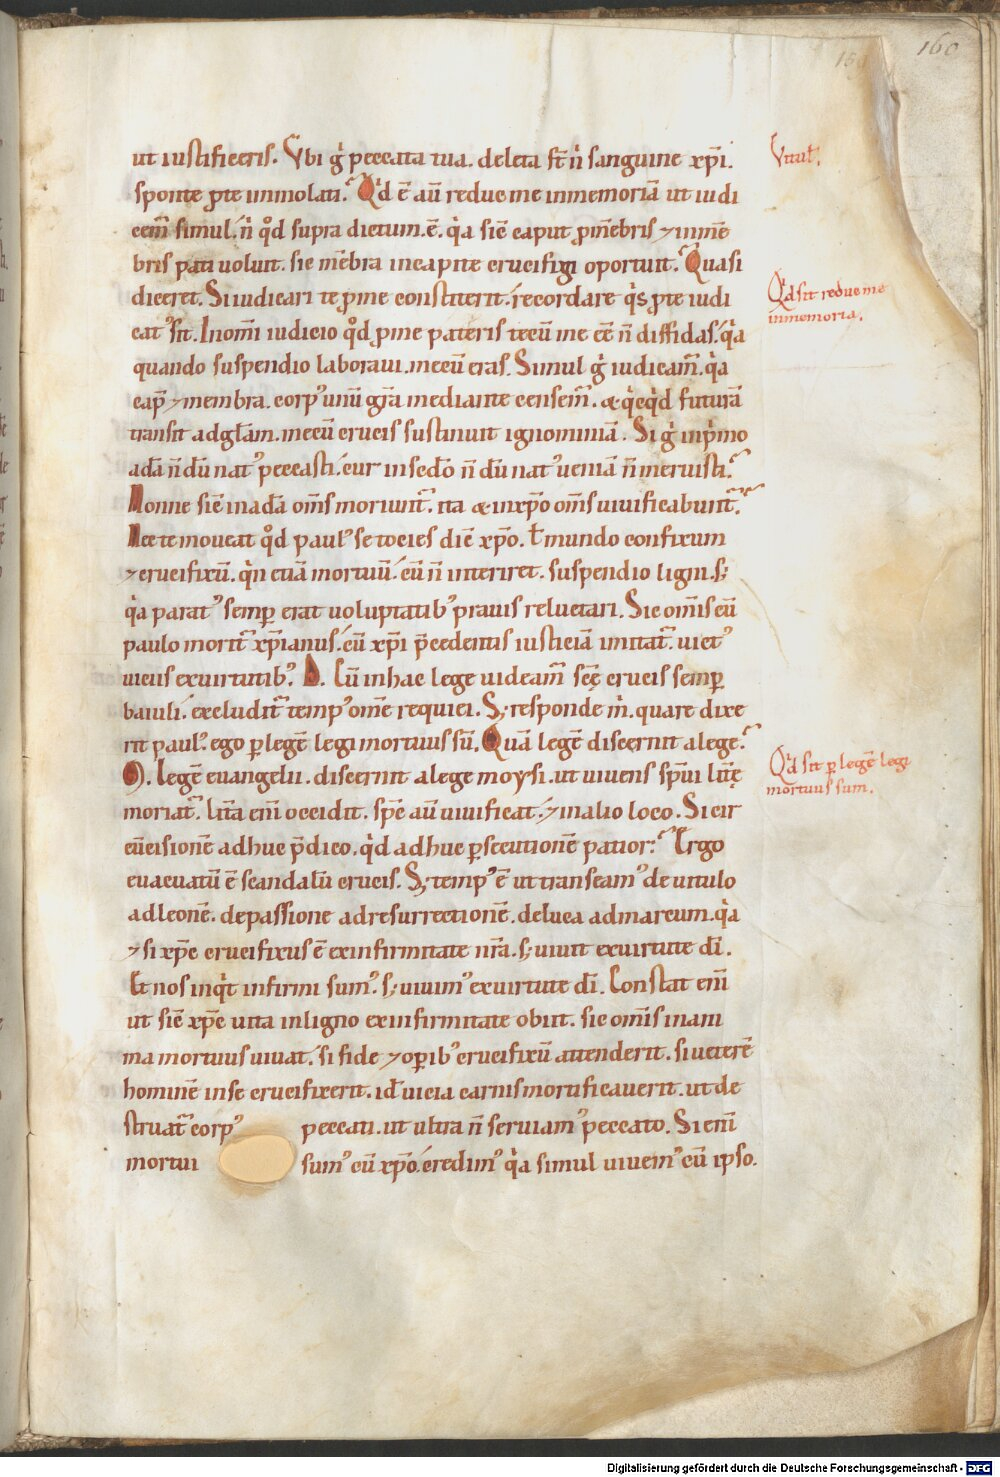 159
160
ut iustificeris. Vbi g̊ peccata tua. deleta st̄ ñ sanguine xp̄i.
Vitul᷒.
sponte ꝓ te immolati. Qd ē aū reduc me inmemoriā ut iudi
cem̄ simul. ñ qͦd supra dictum. ē. qͥa sic̄ caput ꝓ mēbris ⁊ inmē
bris pati uoluit. sic mēbra incapite crucifigi oportuit. Quasi
diceret. Si iudicari te ꝓ me constiterit. recordare qͥs ꝓ te iudi
Qd sit reduc me
inmemoria.
catꝰ sit. Inom̄i iudicio qͦd ꝓ me pateris tecū me cē ñ diffidas. qͥa
quando suspendio laboraui. mecū eras. Simul g̊ iudicam̄. qͥa
cap̄ ⁊ membra. corpꝰ unū gr̄a mediante censem̄. & qͥcqͥd futurā
transit adgl̄am. mecū crucis sustinuit ignominiā. Si g̊ inpͥmo
adā ñ dū natꝰ peccasti. cur insecd̄o ñ dū natꝰ ueniā ñ meruisti.
Nonne sic̄ inadā om̄s moriunt̄. ita & inxp̄o om̄s uiuificabunt̄.
Nec te moueat qͦd paulꝰ se tocies dic̄ xp̄o. ł mundo confixum
⁊ crucifixū. qͥn etiā mortuū. cū ñ interiret. suspendio ligni. s;
qͥa paratꝰ semꝑ erat uoluptatibꝰ prauis reluctari. Sic om̄is cū
paulo morit̄ xp̄ianus. cū xp̄i p̄cedentis iusticiā imitat̄. uictꝰ
uiciis exuirtutibꝰ. D. Cū inhac lege uideam̄ scę̄ crucis semꝑ
baiuli. excludit̄ tempꝰ om̄e requiei. S; responde m̄. quare dixe
rit paulꝰ. ego ꝑ legē legi mortuus sū. Quā legē discernit alege.
Qd sit ꝑ legē legi
mortuus sum.
M. legē euangelii. discernit alege moysi. ut uiuens sp̄ui litę̄
moriat̄. lit̄a em̄ occidit. sp̄c aū uiuificat. ⁊ inalio loco. Si cir
cūcisionē adhuc p̄dico. qͥd adhuc ꝑsecutionē patior. Ergo
euacuatū ē scandalū crucis. S; tempꝰ ē ut transeamꝰ de uitulo
adleonē. depassione adresurrectionē. deluca admarcum. qͥa
⁊ si xp̄c crucifixus ē exinfirmitate nr̄a. s; uiuit exuirtute dī.
Et nos inqͥt infirmi sumꝰ. s; uiuimꝰ exuirtute dī. Constat em̄
ut sic̄ xp̄c uita inligno exinfirmitate obiit. sic om̄is inani
ma mortuus uiuat. si fide ⁊ oꝑibꝰ crucifixū attenderit. si ueterē
hominē inse crucifixerit. id̄ uicia carnis mortificauerit. ut de
struat̄ corpꝰ peccati. ut ultra ñ seruiamꝰ peccato. Si em̄
mortui sumꝰ cū xp̄o. credimꝰ qͥa simul uiuemꝰ cū ipso.
Digitalisierung gefördert durch die Deutsche Forschungsgemeinschaft - DFG